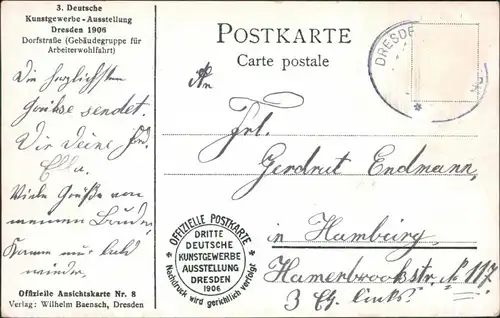 3. Deutsche
Kunstgewerbe - Ausstellung
Dresden 1906
Dorfstraße (Gebäudegruppe für
Arbeiterwohlfahrt)
Die herzlichsten
Grüße sendet
Dir Deine
Ella.
Viele Grüße von
meinem Bruder
Komm nur bald
wieder.
Offizielle Ansichtskarte Nr. 8
Verlag: Wilhelm Baensch, Dresden
POSTKARTE
Carte postale
DRESDE
An
Frl.
Gerdrut Endmann,
in Hamburg
Hamerbrookstr. № 117
3 Etg. links.
OFFIZIELLE POSTKARTE
DRITTE
DEUTSCHE
KUNSTGEWERBE
AUSSTELLUNG
DRESDEN
1906
Nachdruck wird gerichtlich verfolgt